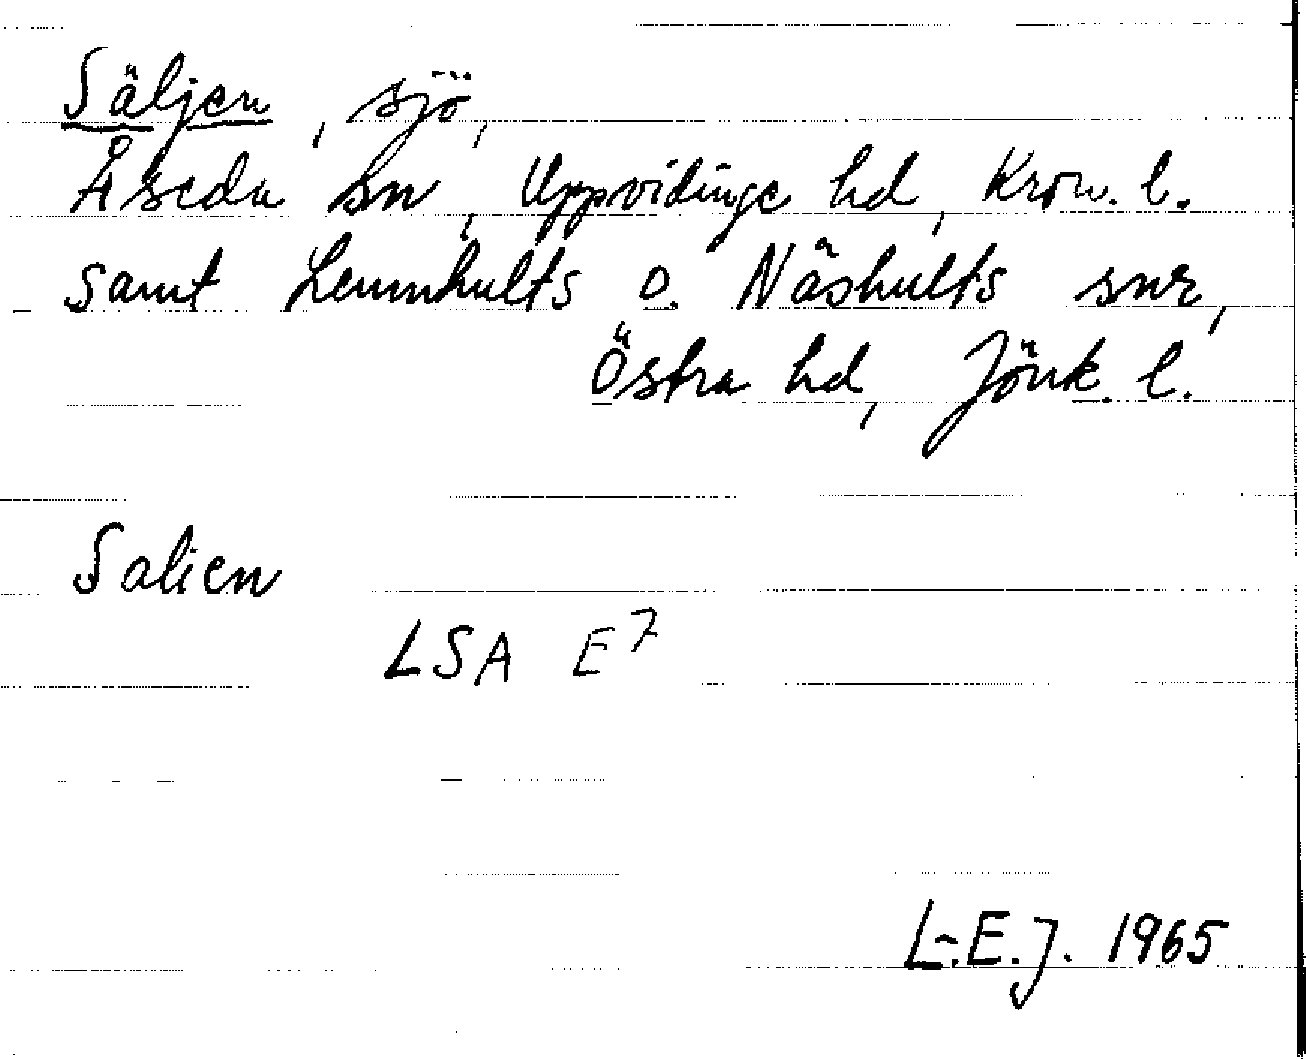 Säljen, sjö,
Åseda sn, Uppvidinge hd, Kron. l.
samt Lemnhults o. Näshults snr,
Östra hd, Jönk. l.
Salien
LSA E7
L-E.J. 1965